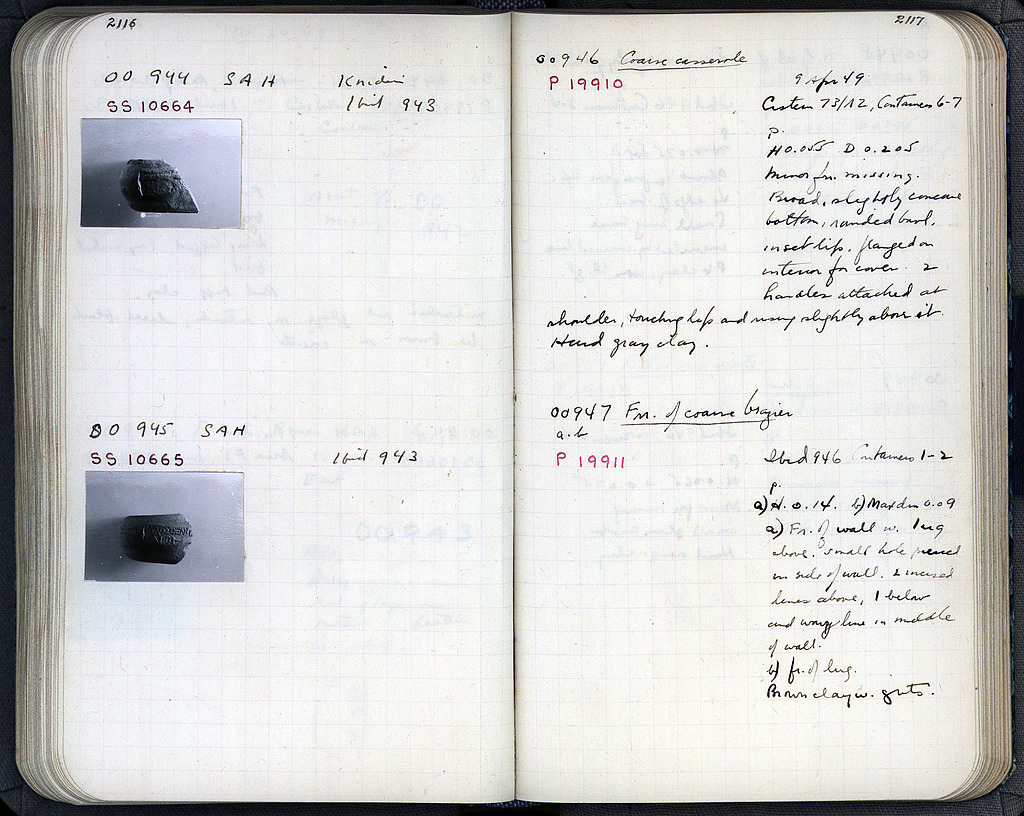 2116
OO 944 SAH Knidian
SS 10664 Ibid 943
OO 945 SAH
SS 10665 Ibid 943
2117
OO 946 Coarse casserole
P 19910 9 Apr 49
Cistern 73/12, Containers 6-7
P.
H 0.055 D 0.205
Minor frr. missing.
Broad, slightly concave
bottom, rounded bowl,
inset lip, flanged on
interior for cover. 2
handles attached at
shoulder, touching lip and rising slightly above it.
Hard gray clay.
OO 947 Frr. of coarse brazier
a-b
P 19911 Ibid 946 Containers 1-2
P.
a) H. 0.14. b) Max dim 0.09
a) Fr. of wall w. 1 lug
above. Small hole pierced
in side of wall. 2 incised
lines above, 1 below
and wavy line in middle
of wall.
b) fr. of lug.
Brown clay w. grits.